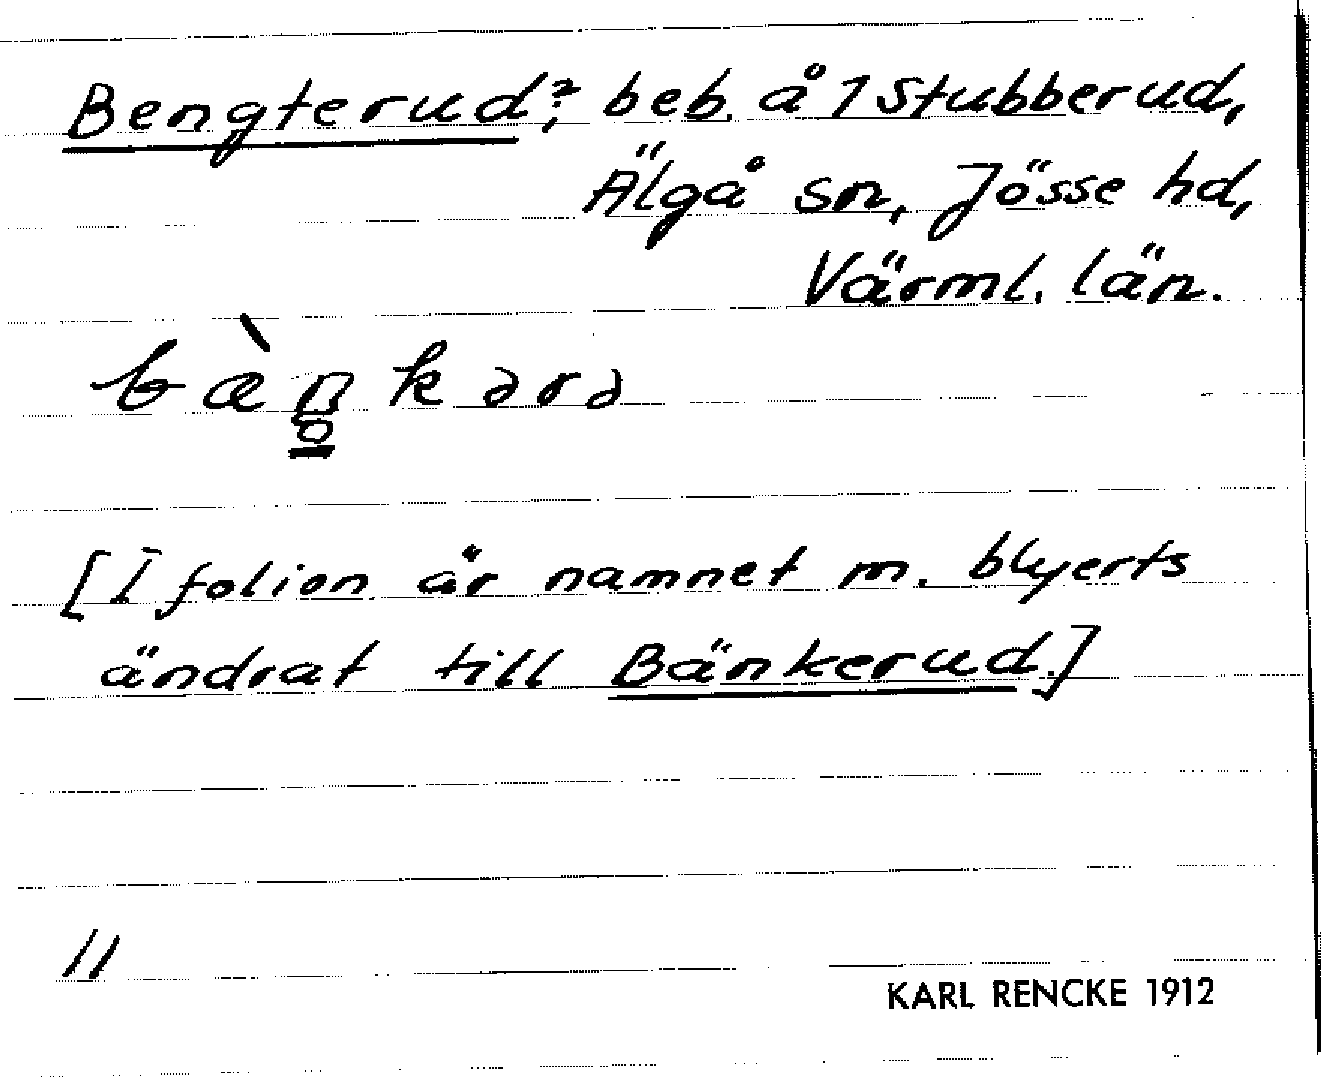 Bengterud?, beb. å 1 Stubberud,
Älgå sn, Jösse hd,
Värml. län.
bæ̀n̥kərə
[I folion är namnet m. blyerts
ändrat till Bänkerud.]
11
KARL RENCKE 1912